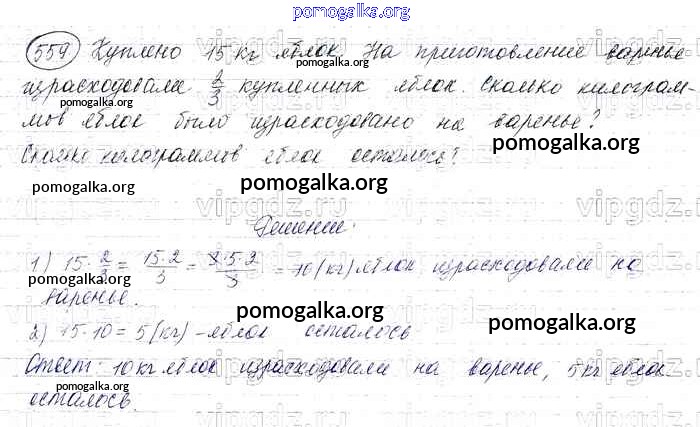 pomogalka.org
559 Куплено 15 кг яблок. На приготовление варенье
израсходовали 2/3 купленных яблок. Сколько килограм-
pomogalka.org pomogalka.org
мов яблок было израсходовано на варенье?
pomogalka.org
Сколько килограммов яблок осталось?
pomogalka.org pomogalka.org
vipgdz.ru vipgdz.ru
Решение:
1) 15 · 2/3 = 15·2/3 = 15·2/3 = 10 (кг) яблок израсходовали на
pomogalka.org pomogalka.org
варенье.
pomogalka.org pomogalka.org
2) 15 · 10 = 5 (кг) – яблок осталось
Ответ: 10 кг яблок израсходовали на варенье, 5 кг яблок
pomogalka.org pomogalka.org
осталось.